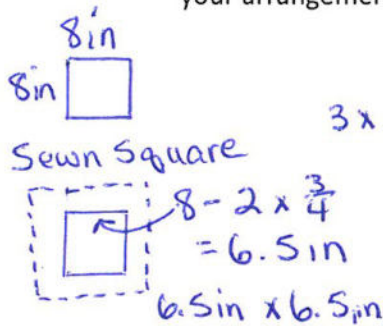 your arrangemer
8in
8in
3 x
Sewn Square
8 - 2 x 3/4
= 6.5in
6.5in x 6.5in